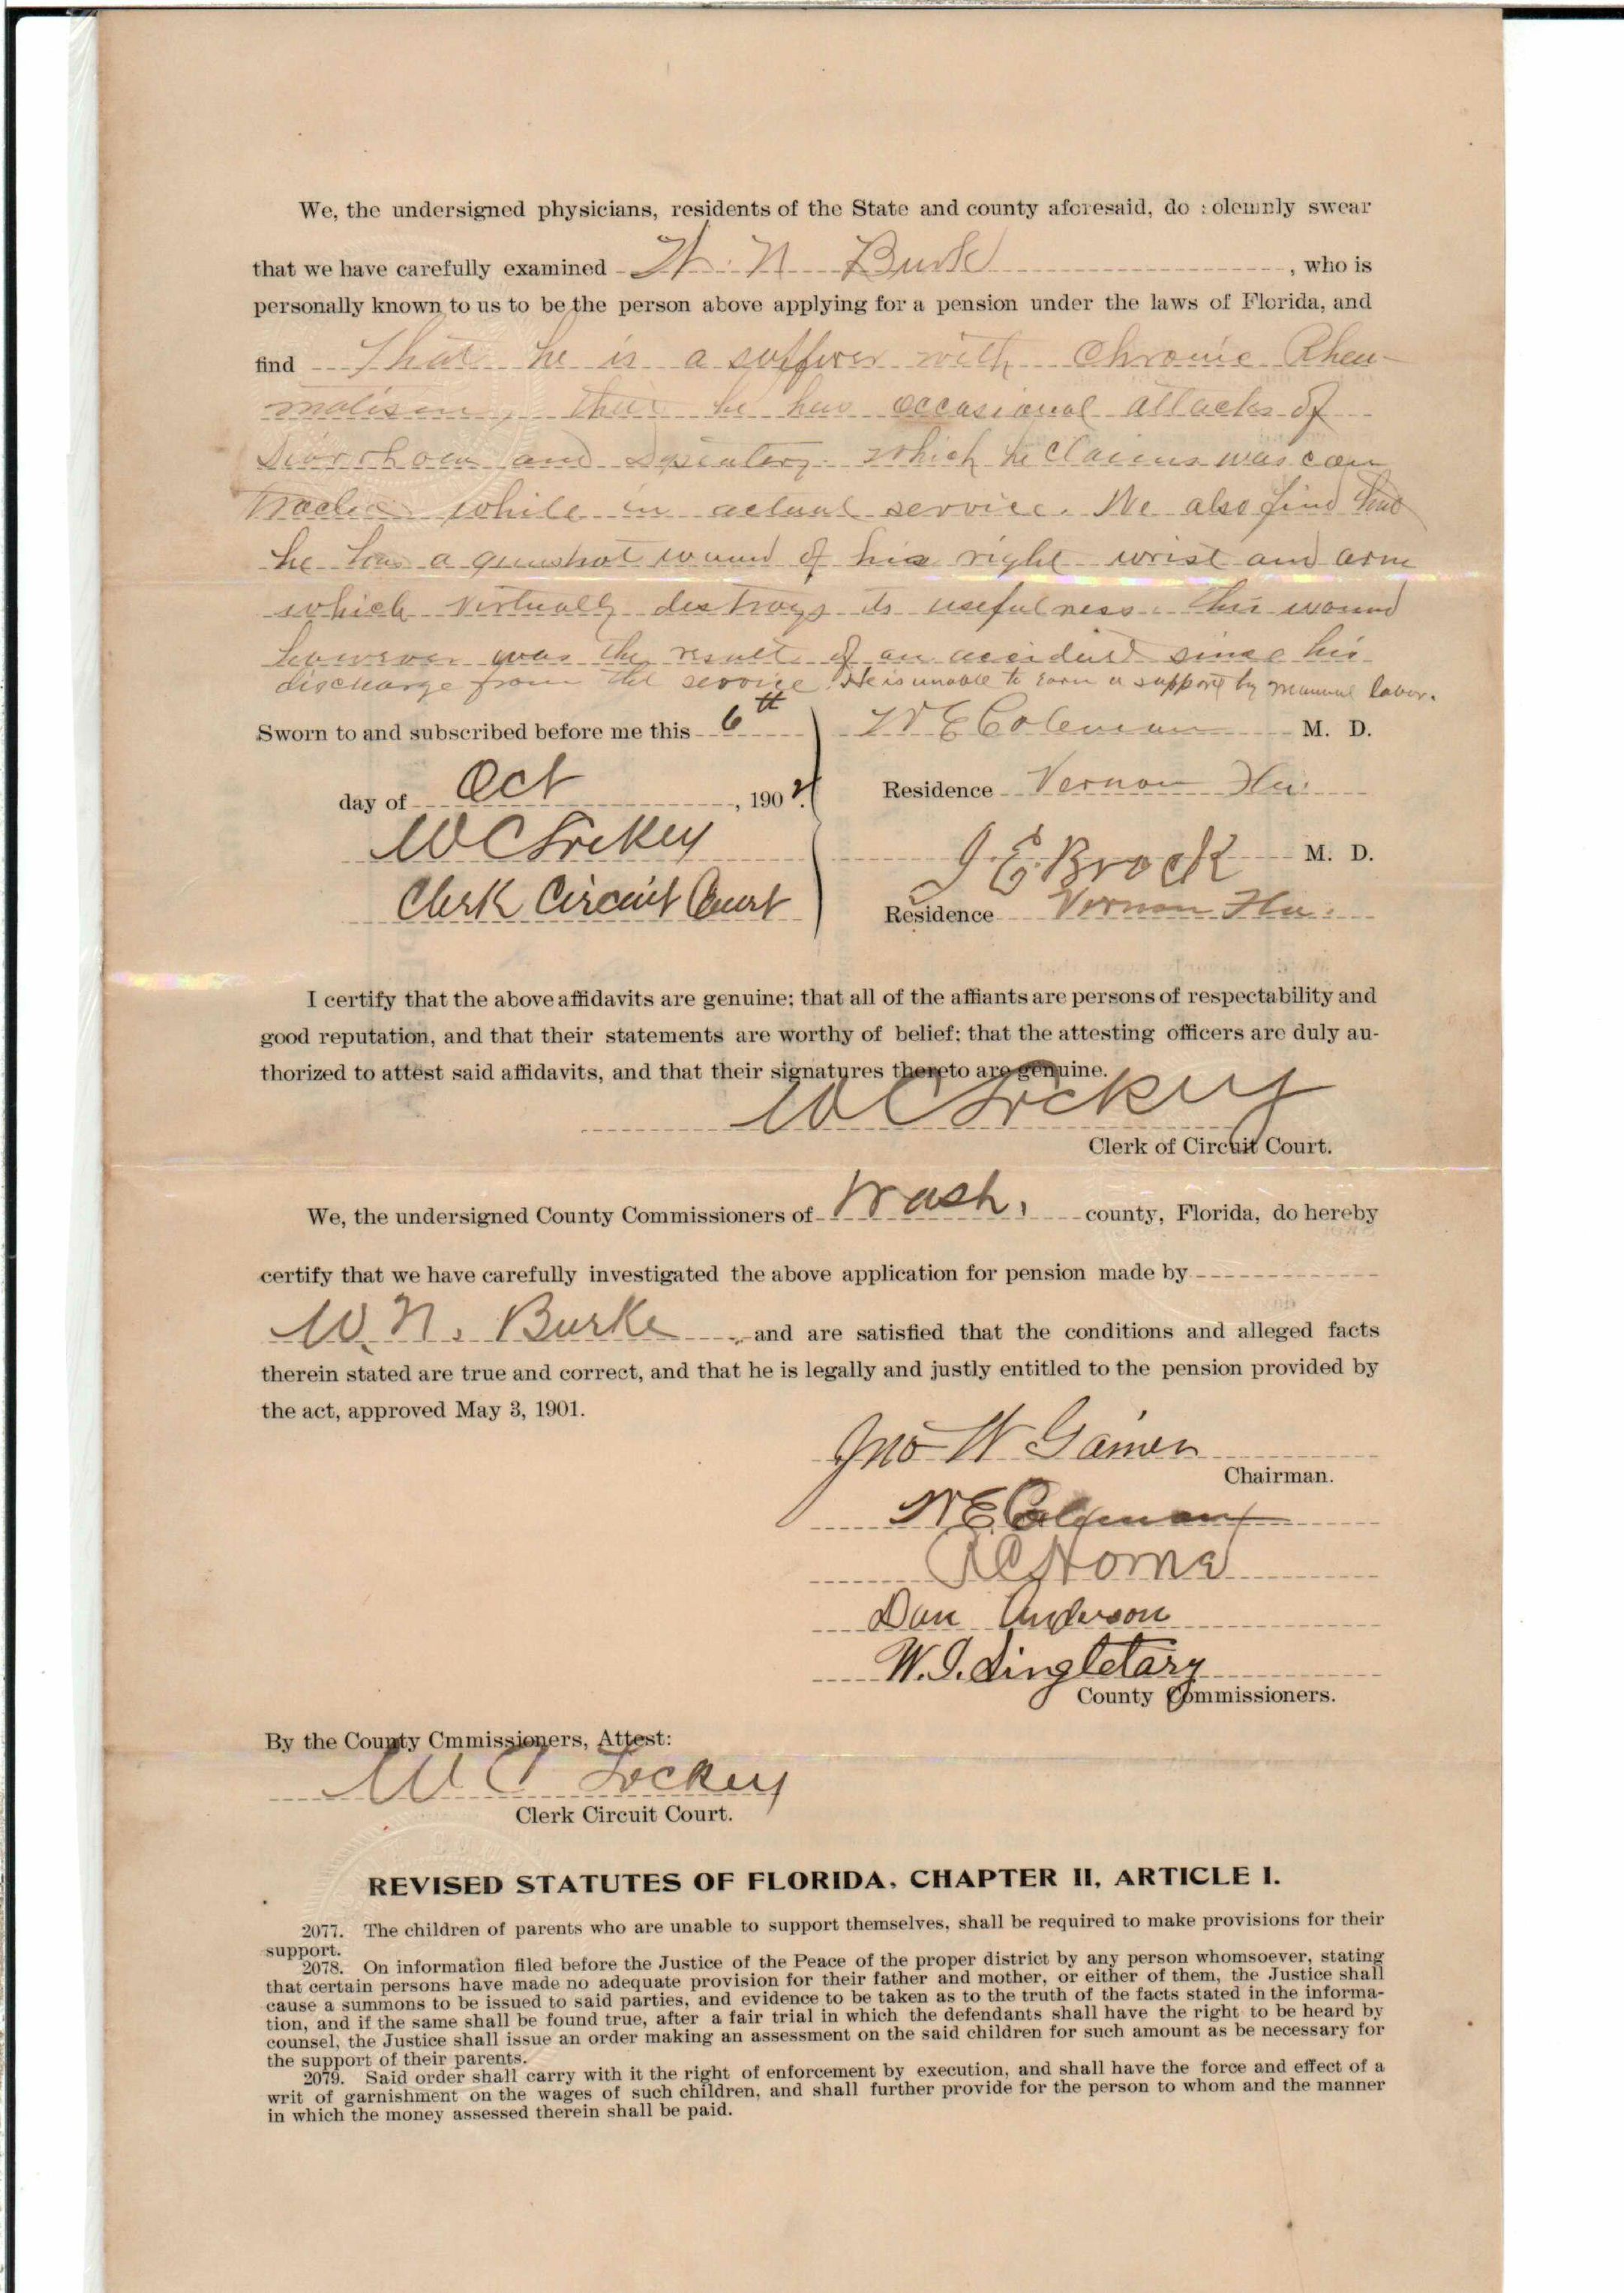 We, the undersigned physicians, residents of the State and county aforesaid, do solemnly swear
that we have carefully examined W. N. Burke, who is
personally known to us to be the person above applying for a pension under the laws of Florida, and
find That he is a sufferer with Chronic Rheu-
matism, that he has occasional attacks of
Diarrhoea and Dysentery which he claims was con
tracted while in actual service. We also find that
he has a gunshot wound of his right wrist and arm
which virtually destroys its usefulness. This wound
however was the result of an accident since his
discharge from the service. He is unable to earn a support by manual labor.
Sworn to and subscribed before me this 6th
W E Coleman M. D.
day of Oct, 190
Residence Vernon Fla.
W C Lockey
J. E. Brock M. D.
Clerk Circuit Court
Residence Vernon Fla.
I certify that the above affidavits are genuine; that all of the affiants are persons of respectability and
good reputation, and that their statements are worthy of belief; that the attesting officers are duly au-
thorized to attest said affidavits, and that their signatures thereto are genuine.
W C Lockey
Clerk of Circuit Court.
We, the undersigned County Commissioners of Wash. county, Florida, do hereby
certify that we have carefully investigated the above application for pension made by
W. N. Burke, and are satisfied that the conditions and alleged facts
therein stated are true and correct, and that he is legally and justly entitled to the pension provided by
the act, approved May 3, 1901.
Jno W Gainer
Chairman.
W E Coleman
R C Horne
Dan Anderson
W. J. Singletary
County Commissioners.
By the County Cmmissioners, Attest:
W C Lockey
Clerk Circuit Court.
REVISED STATUTES OF FLORIDA, CHAPTER II, ARTICLE I.
2077. The children of parents who are unable to support themselves, shall be required to make provisions for their
support.
2078. On information filed before the Justice of the Peace of the proper district by any person whomsoever, stating
that certain persons have made no adequate provision for their father and mother, or either of them, the Justice shall
cause a summons to be issued to said parties, and evidence to be taken as to the truth of the facts stated in the informa-
tion, and if the same shall be found true, after a fair trial in which the defendants shall have the right to be heard by
counsel, the Justice shall issue an order making an assessment on the said children for such amount as be necessary for
the support of their parents.
2079. Said order shall carry with it the right of enforcement by execution, and shall have the force and effect of a
writ of garnishment on the wages of such children, and shall further provide for the person to whom and the manner
in which the money assessed therein shall be paid.